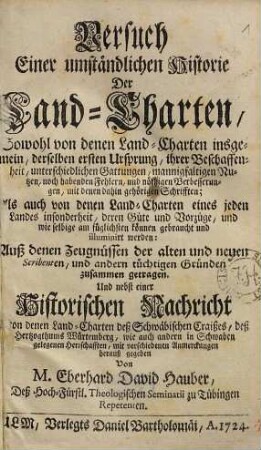 Versuch
Einer umständlichen Historie
Der
Land-Charten,
Sowohl von denen Land-Charten insge-
mein, derselben ersten Ursprung, ihrer Beschaffen-
heit, unterschiedlichen Gattungen, mannigfaltigen Nu-
tzen, noch habenden Fehlern, und nöthigen Verbesserun-
gen, mit denen dahin gehörigen Schrifften;
Als auch von denen Land-Charten eines jeden
Landes insonderheit, deren Güte und Vorzüge, und
wie selbige am füglichsten können gebraucht und
illuminirt werden:
Auß denen Zeugnüssen der alten und neuen
Scribenten, und andern tüchtigen Gründen
zusammen getragen.
Und nebst einer
Historischen Nachricht
von denen Land-Charten deß Schwäbischen Craißes, deß
Hertzogthums Würtemberg, wie auch andern in Schwaben
gelegenen Herrschafften, mit verschiedenen Anmerckungen
herauß gegeben
Von
M. Eberhard David Hauber,
Deß Hoch-Fürstl. Theologischen Seminarii zu Tübingen
Repetenten.
ULM, Verlegts Daniel Bartholomäi, A. 1724.